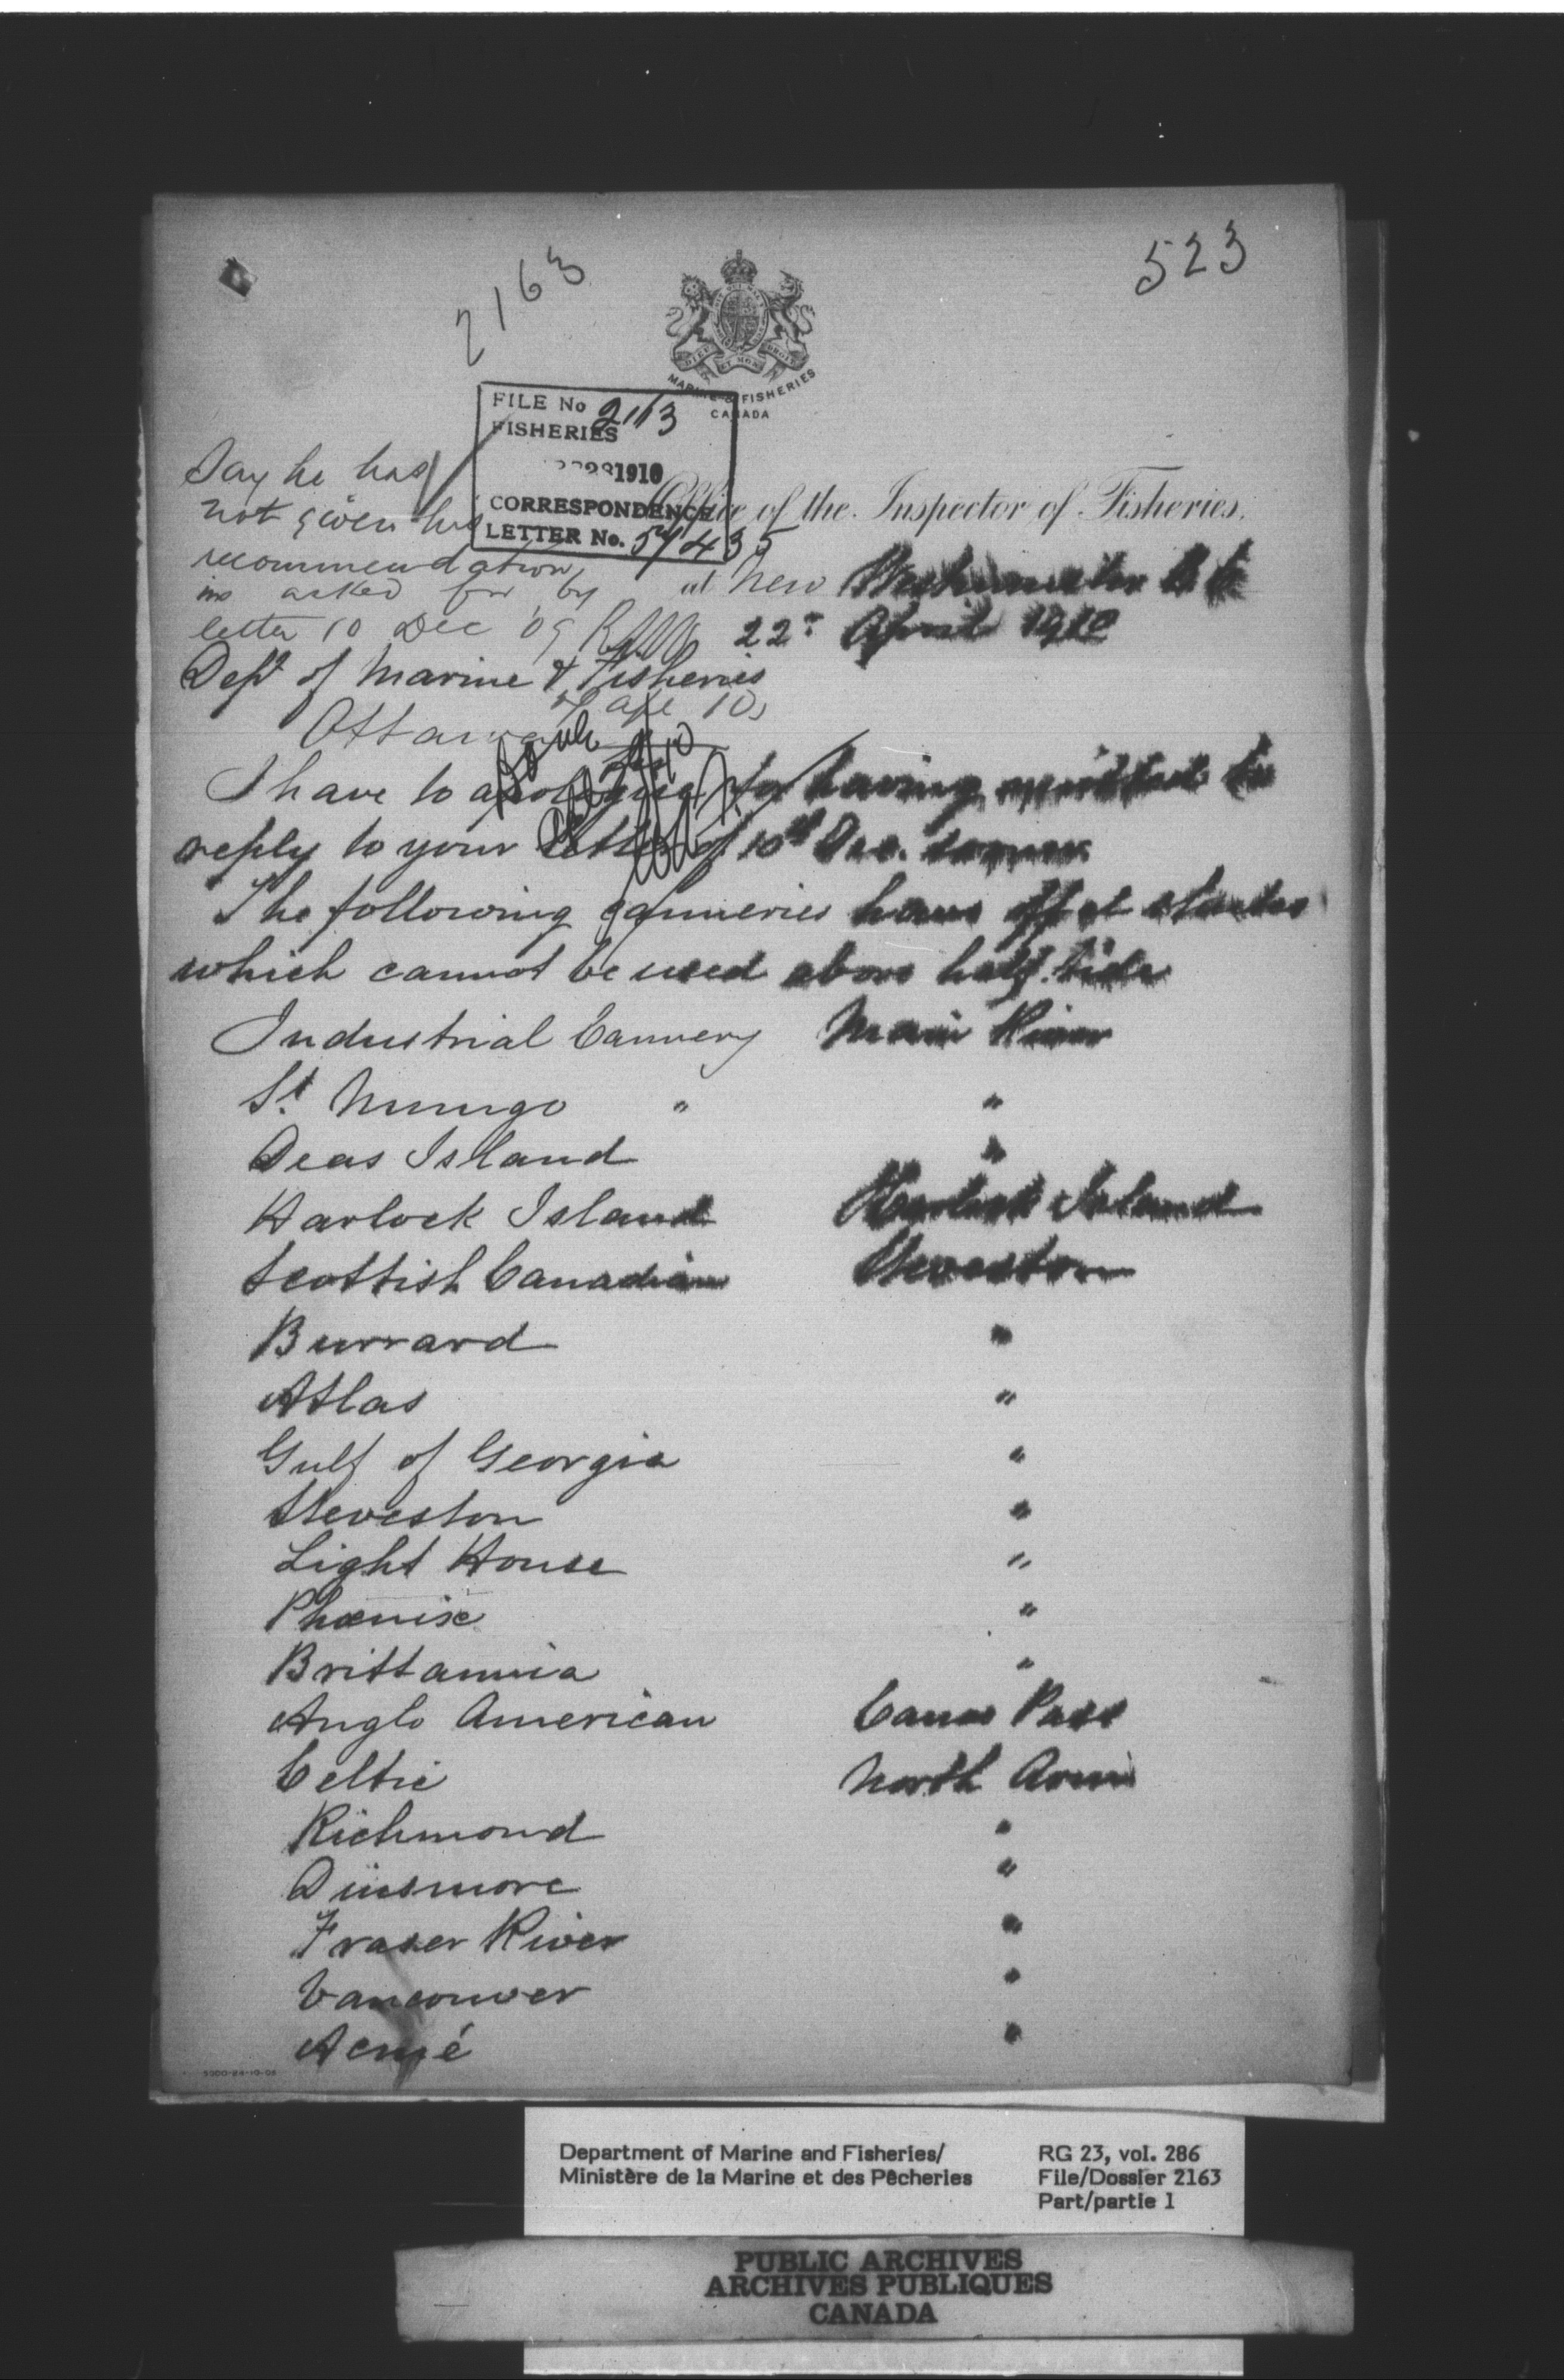 523
2163
DIEU ET MON DROIT
MARINE & FISHERIES
CANADA
FILE No 2163
FISHERIES
1910
CORRESPONDENCE
LETTER No. 57435
Office of the Inspector of Fisheries.
Say he has
not given his
recommendation
as asked for by
letter 10 Dec '09
at New Westminster B C
22nd April 1910
Dept of Marine & Fisheries
Ottawa
I have to apologise for having omitted to
reply to your letter of 10th Dec. sooner.
The following canneries have offal chutes
which cannot be used above half tide
Industrial Cannery Main River
St. Mungo " "
Deas Island "
Harlock Island Harlock Island
Scottish Canadian Steveston
Burrard "
Atlas "
Gulf of Georgia "
Steveston "
Light House "
Phœnix "
Brittannia "
Anglo American Canoe Pass
Celtic North Arm
Richmond "
Dinsmore "
Fraser River "
Vancouver "
Acmé "
5000-24-10-08
Department of Marine and Fisheries/
Ministère de la Marine et des Pêcheries
RG 23, vol. 286
File/Dossier 2163
Part/partie 1
PUBLIC ARCHIVES
ARCHIVES PUBLIQUES
CANADA